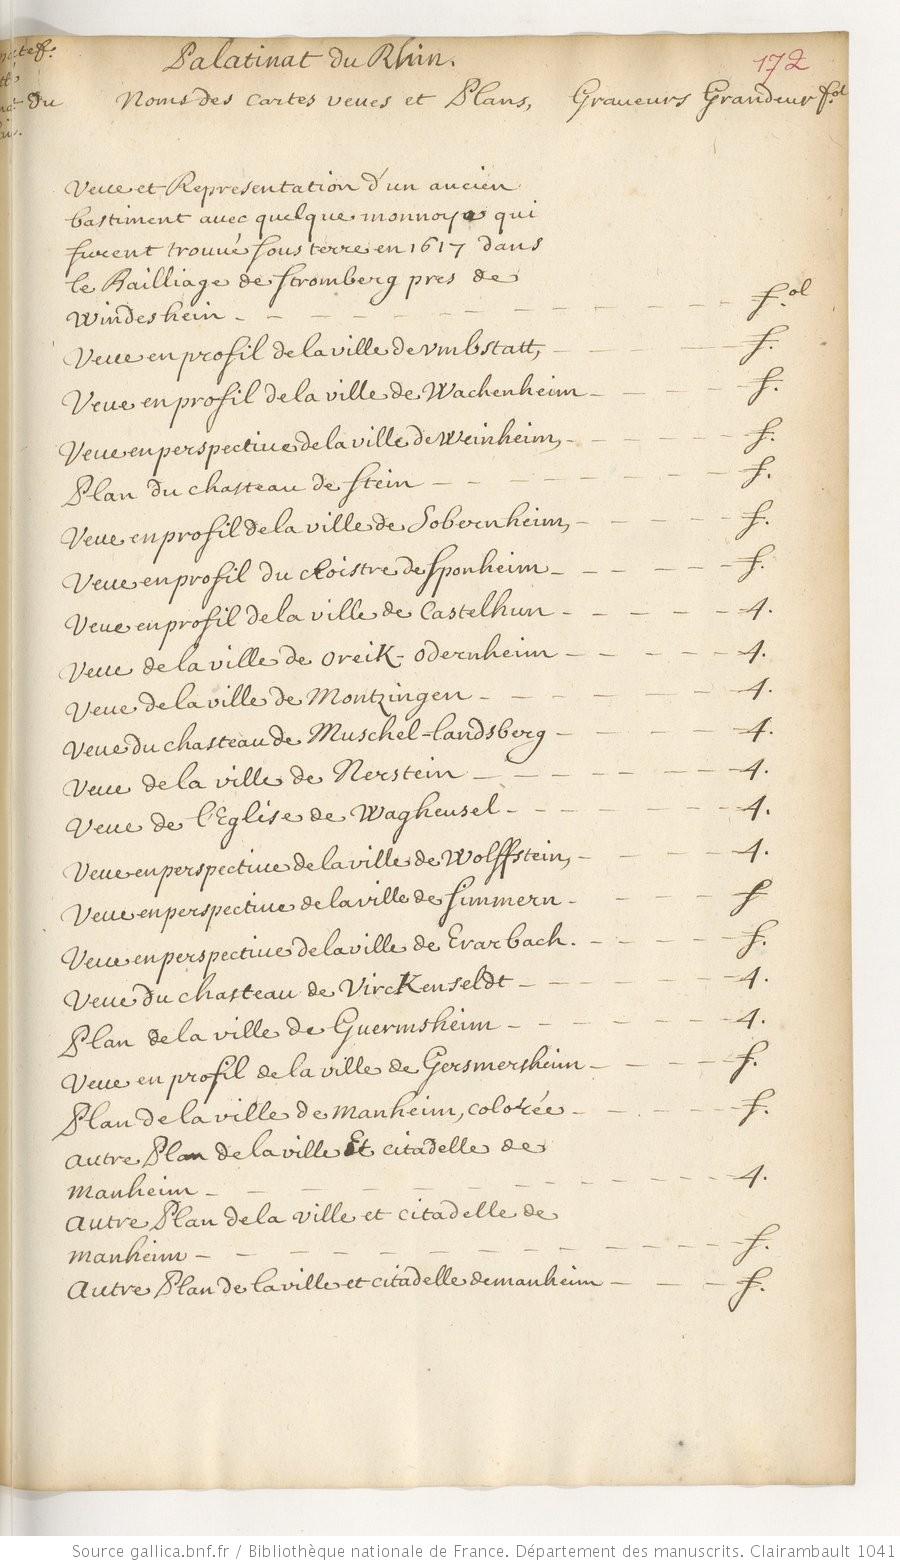 Palatinat du Rhin.
172
du Noms des cartes veues et Plans, Graveurs Grandeur f.ol
Veue et Representation d'un ancien
bastiment avec quelque monnoye qui
furent trouvé sous terre en 1617 dans
le Bailliage de Stromberg pres de
Windesheim - - - - - - - - - - f.ol
Veue en profil de la ville de Umbstatt, - - - - - f.
Veue en profil de la ville de Wachenheim - - - - - f.
Veue en perspective de la ville de Weinheim, - - - - - f.
Plan du chasteau de Stein - - - - - - - f.
Veue en profil de la ville de Sobernheim, - - - - - f.
Veue en profil du cloistre de Sponheim - - - - - f.
Veue en profil de la ville de Castelhun - - - - - 4.
Veue de la ville de Oreik-Odernheim - - - - - 4.
Veue de la ville de Montzingen - - - - - - 4.
Veue du chasteau de Muschel-landsberg - - - - - 4.
Veue de la ville de Nerstein - - - - - - - 4.
Veue de l'Eglise de Wagheusel - - - - - - 4.
Veue en perspective de la ville de Wolffstein, - - - - 4.
Veue en perspective de la ville de Simmern - - - - - f
Veue en perspective de la ville de Erarbach. - - - - - f.
Veue du chasteau de Virckenseldt - - - - - - 4.
Plan de la ville de Guermsheim - - - - - - 4.
Veue en profil de la ville de Gersmersheim - - - - - f.
Plan de la ville de Manheim, colorée - - - - - f.
Autre Plan de la ville Et citadelle de
Manheim - - - - - - - - - - - 4.
Autre Plan de la ville et citadelle de
Manheim - - - - - - - - - - - f.
Autre Plan de la ville et citadelle de Manheim - - - - f.
Source gallica.bnf.fr / Bibliothèque nationale de France. Département des manuscrits. Clairambault 1041